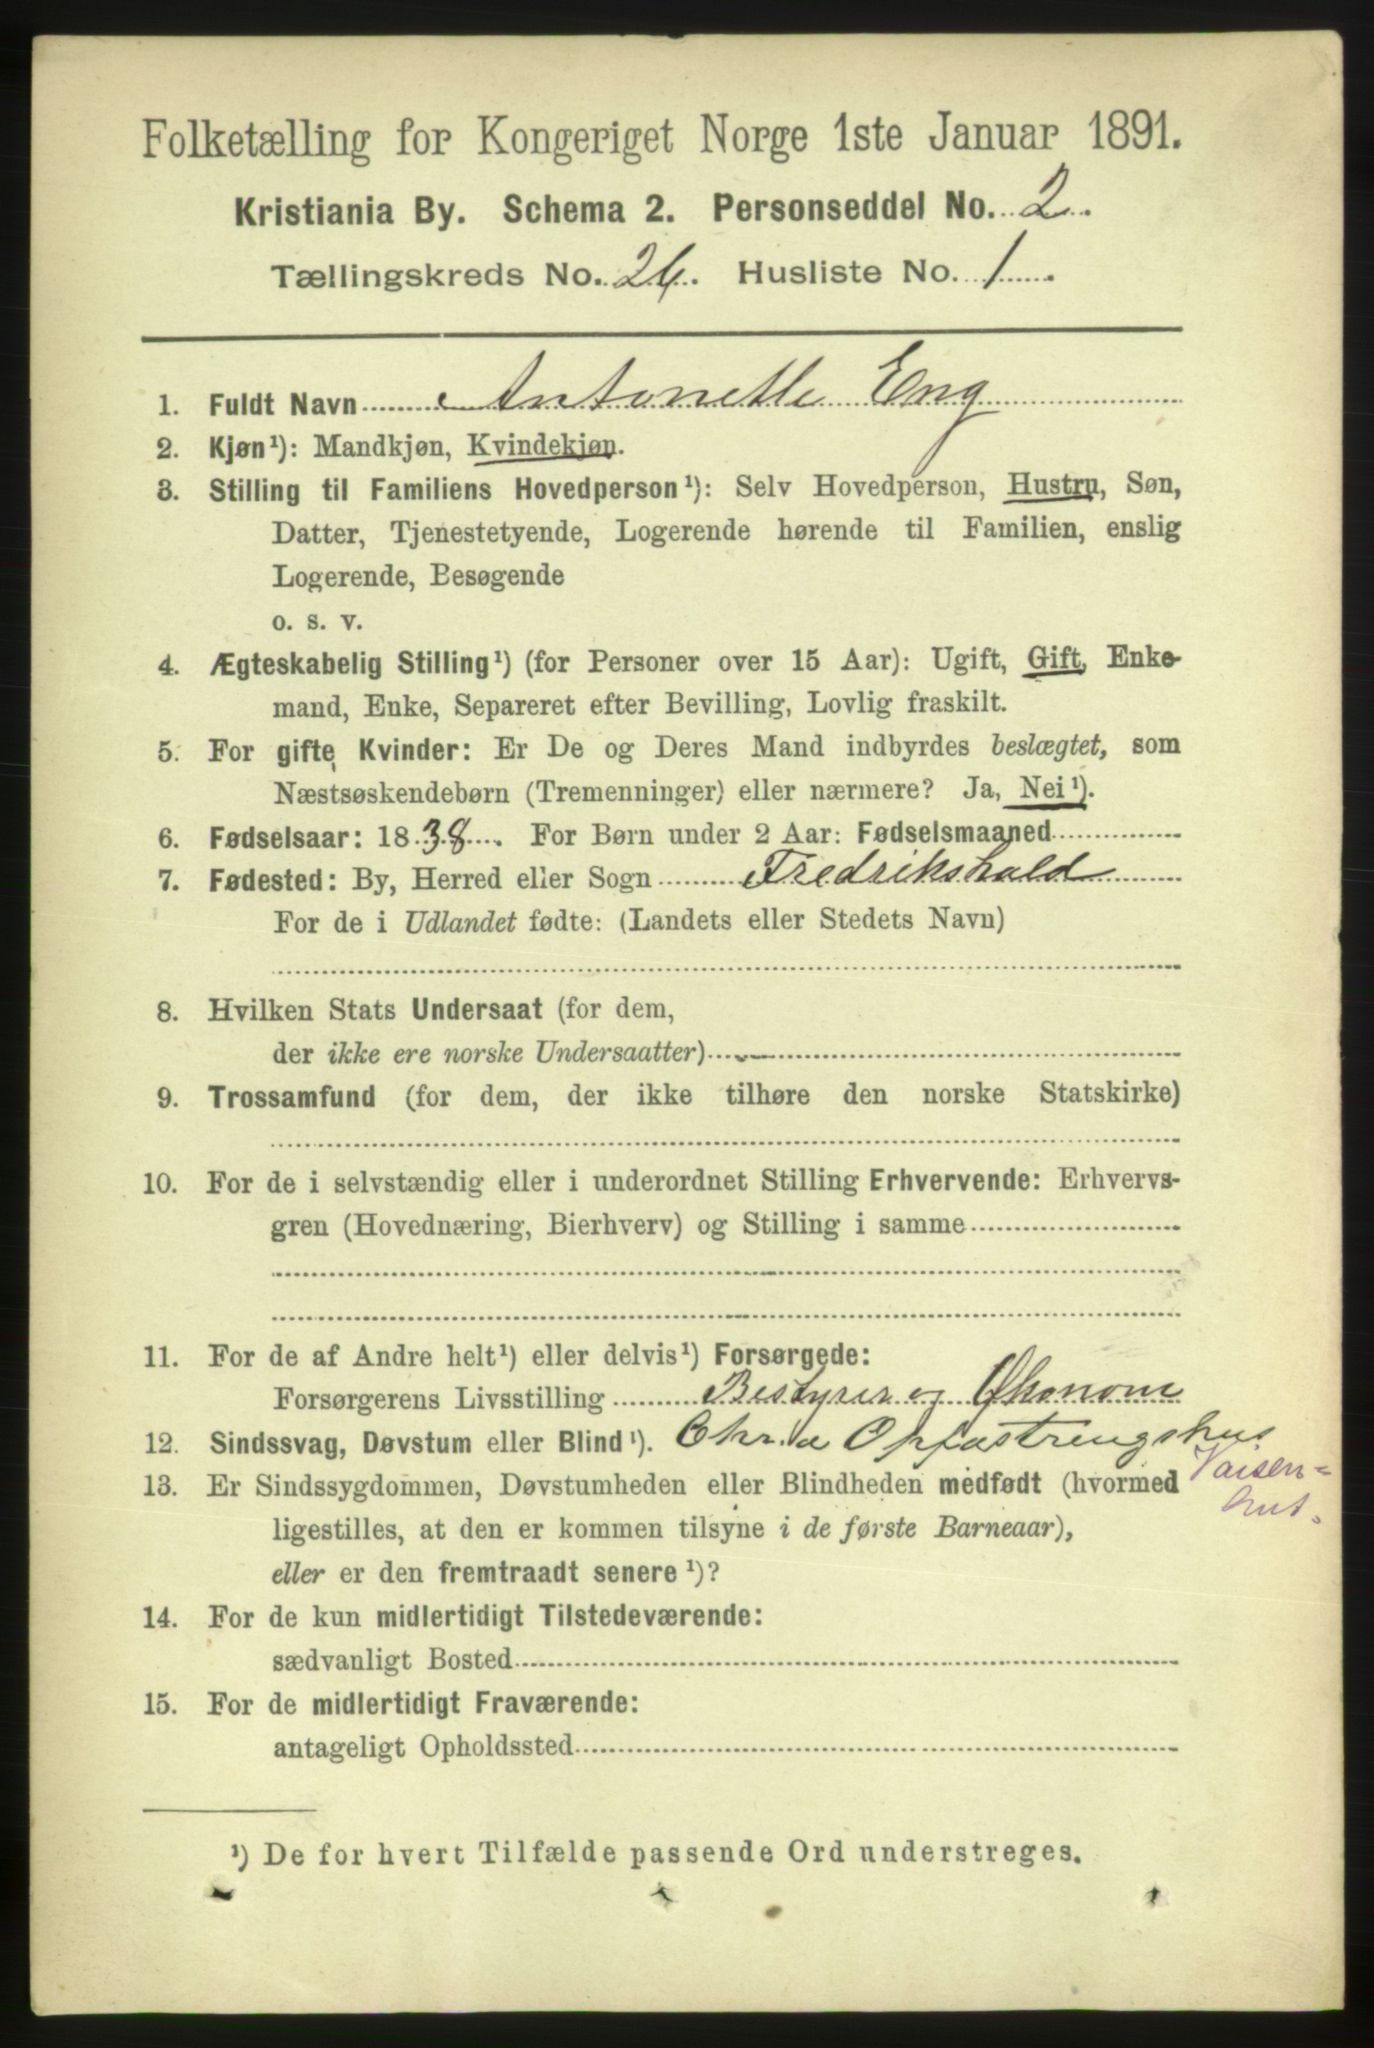 Folketælling for Kongeriget Norge 1ste Januar 1891.
Kristiania By. Schema 2. Personseddel No. 2.
Tællingskreds No. 26. Husliste No. 1.
1. Fuldt Navn Antonette Eng
2. Kjøn¹): Mandkjøn, Kvindekjøn.
3. Stilling til Familiens Hovedperson¹): Selv Hovedperson, Hustru, Søn,
Datter, Tjenestetyende, Logerende hørende til Familien, enslig
Logerende, Besøgende
o. s. v.
4. Ægteskabelig Stilling¹) (for Personer over 15 Aar): Ugift, Gift, Enke-
mand, Enke, Separeret efter Bevilling, Lovlig fraskilt.
5. For gifte Kvinder: Er De og Deres Mand indbyrdes beslægtet, som
Næstsøskendebørn (Tremenninger) eller nærmere? Ja, Nei¹).
6. Fødselsaar: 1838. For Børn under 2 Aar: Fødselsmaaned
7. Fødested: By, Herred eller Sogn Fredrikshald
For de i Udlandet fødte: (Landets eller Stedets Navn)
8. Hvilken Stats Undersaat (for dem,
der ikke ere norske Undersaatter)
9. Trossamfund (for dem, der ikke tilhøre den norske Statskirke)
10. For de i selvstændig eller i underordnet Stilling Erhvervende: Erhvervs-
gren (Hovednæring, Bierhverv) og Stilling i samme
11. For de af Andre helt¹) eller delvis¹) Forsørgede:
Forsørgerens Livsstilling Bestyrer og Økonom
12. Sindssvag, Døvstum eller Blind¹). Chr.a Opfostringshus
Vaisen=
13. Er Sindssygdommen, Døvstumheden eller Blindheden medfødt (hvormed
ligestilles, at den er kommen tilsyne i de første Barneaar),
eller er den fremtraadt senere¹)?
14. For de kun midlertidigt Tilstedeværende:
sædvanligt Bosted
15. For de midlertidigt Fraværende:
antageligt Opholdssted
¹) De for hvert Tilfælde passende Ord understreges.